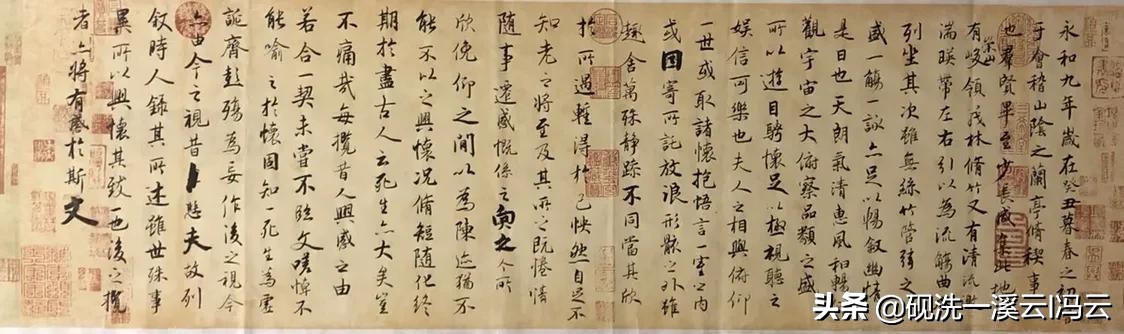 永和九年歲在癸丑暮春之初
于會稽山陰之蘭亭脩稧事
也羣賢畢至少長咸集此地
有崇山峻領茂林脩竹又有清流激
湍暎帶左右引以為流觴曲
列坐其次雖無絲竹管弦之
盛一觴一詠亦足以暢敘幽情
是日也天朗氣清惠風和暢
觀宇宙之大俯察品類之盛
所以遊目騁懷足以極視聽之
娛信可樂也夫人之相與俯仰
一世或取諸懷抱悟言一室之內
或因寄所託放浪形骸之外雖
趣舍萬殊靜躁不同當其欣
於所遇蹔得於己怏然自足不
知老之將至及其所之既惓情
隨事遷感慨係之矣向之所
欣俛仰之間以為陳迹猶不
能不以之興懷況脩短隨化終
期於盡古人云死生亦大矣豈
不痛哉每攬昔人興感之由
若合一契未嘗不臨文嗟悼不
能喻之於懷固知一死生為虛
誕齊彭殤為妄作後之視今
亦由今之視昔悲夫故列
敘時人錄其所述雖世殊事
異所以興懷其致一也後之攬
者亦將有感於斯文
头条 @砚洗一溪云|冯云